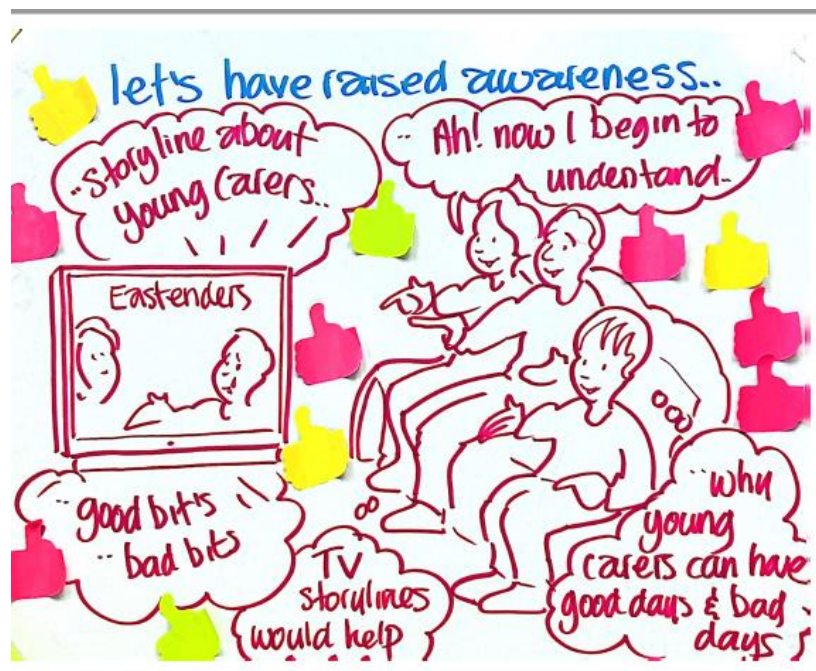 let's have raised awareness..
.. Storyline about
young carers...
.. Ah! now I begin to
understand..
Eastenders
.. good bit's
.. bad bits
TV
storylines
would help
.. why
young
carers can have
good days & bad
days